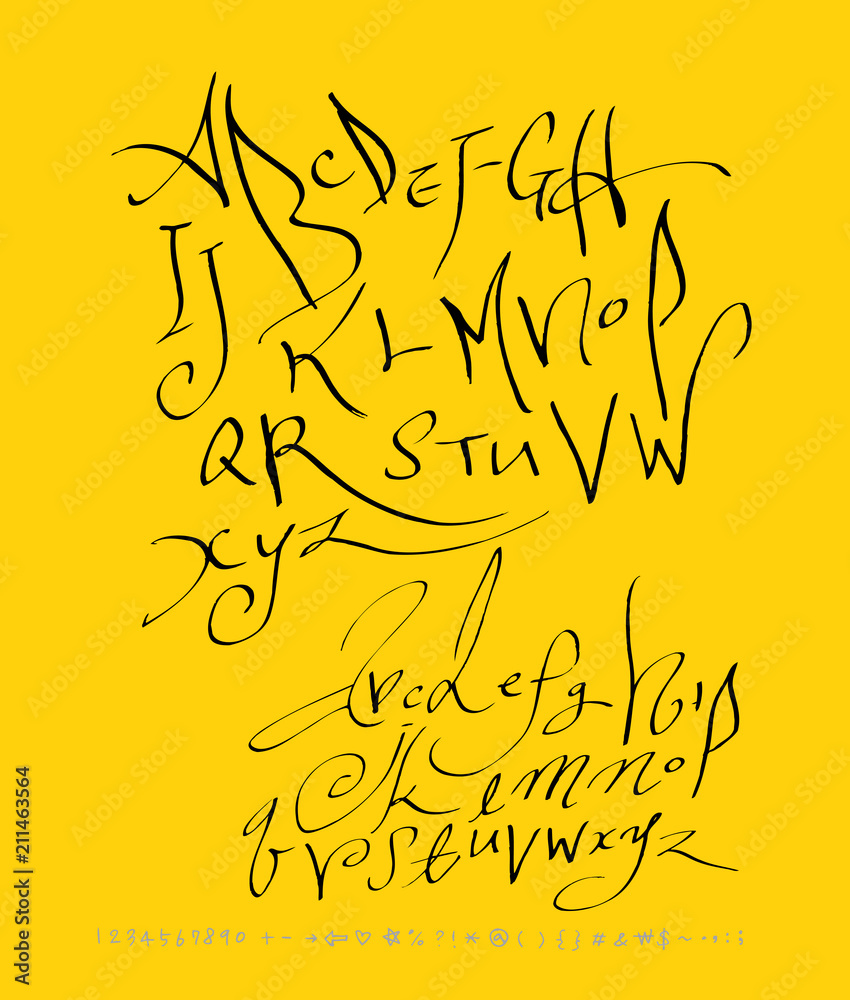 ABCDEFGH
IJKLMNOP
QRSTUVW
xyz
abcdefghip
jklmnop
qrstuvwxyz
1234567890 +-→⇦♡☆%?!*@(){}#&₩$~·,:;
Adobe Stock | #211463564